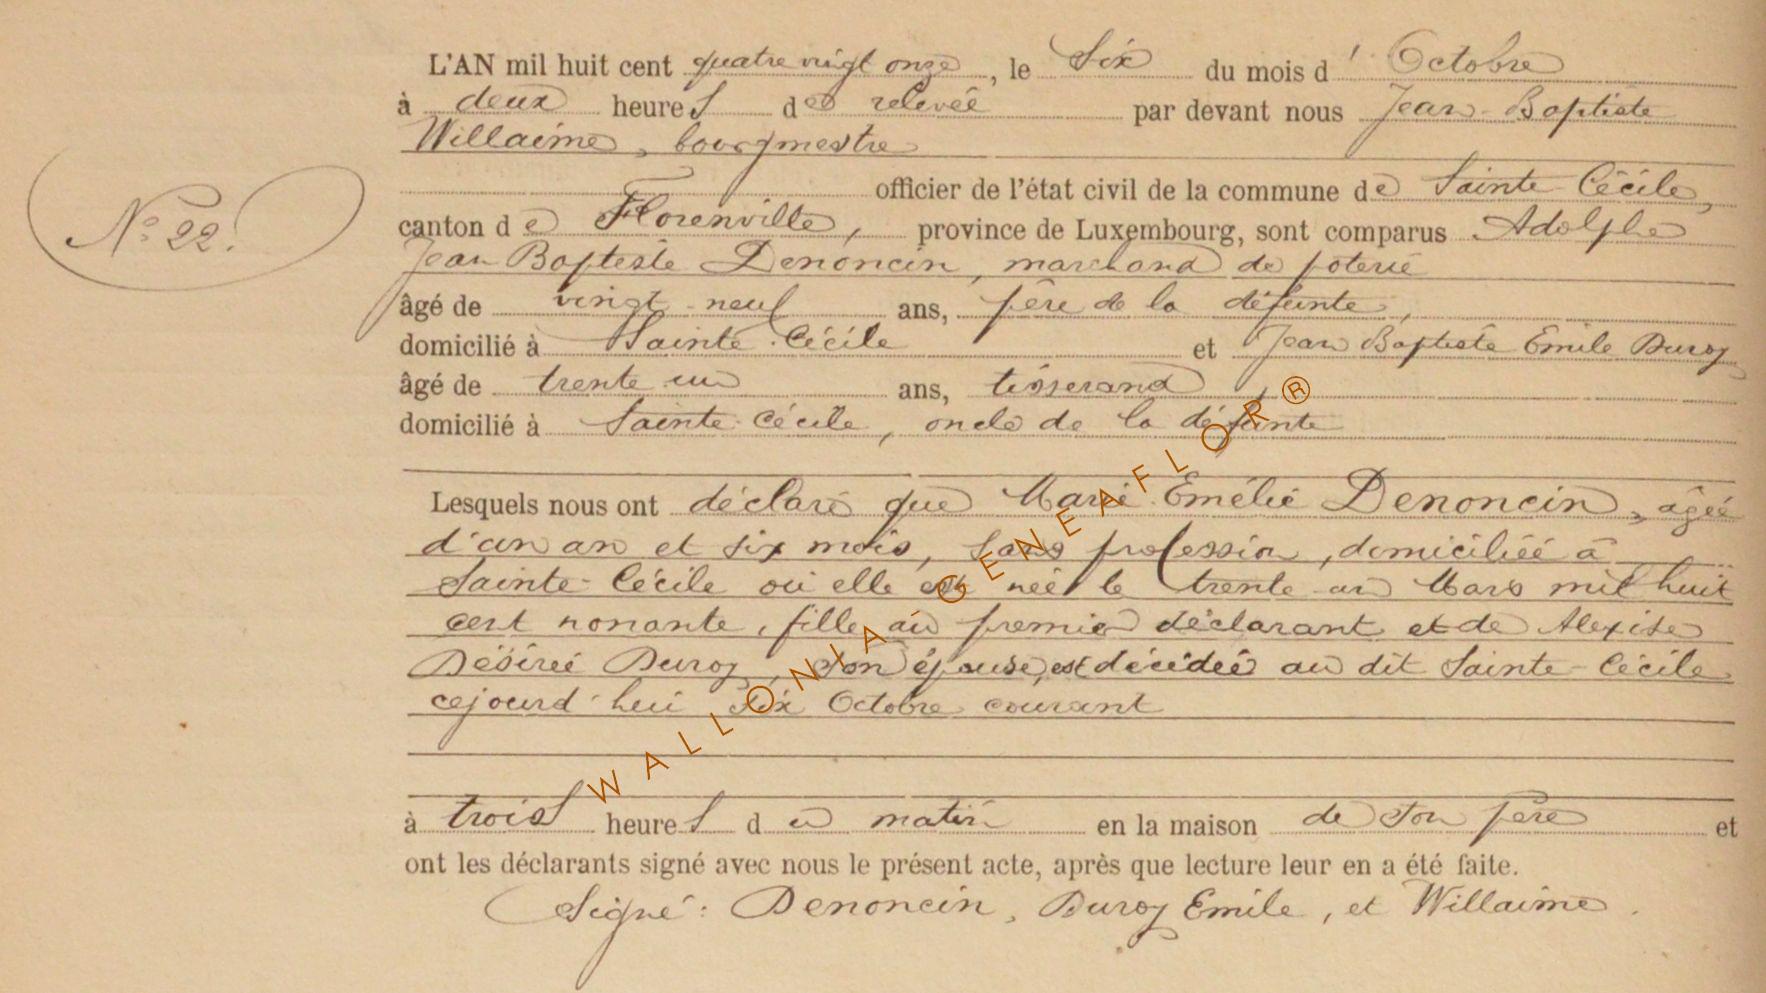 L'AN mil huit cent quatre vingt onze, le Six du mois d' Octobre
à deux heures de relevée par devant nous Jean-Baptiste
Willaime, bourgmestre
officier de l'état civil de la commune de Sainte-Cécile,
N° 22.
canton de Florenville, province de Luxembourg, sont comparus Adolphe
Jean Baptiste Denoncin, marchand de poterie
âgé de vingt-neuf ans, père de la défunte,
domicilié à Sainte-Cécile et Jean Baptiste Emile Duroy
âgé de trente un ans, tisserand
domicilié à Sainte-Cécile, oncle de la défunte
Lesquels nous ont déclaré que Marie Emélie Denoncin, âgée
d'un an et six mois, sans profession, domiciliée à
Sainte-Cécile où elle est née le trente un Mars mil huit
cent nonante, fille au premier déclarant et de Alexise
Désirée Duroy, son épouse, est décédée au dit Sainte-Cécile
cejourd'hui Six Octobre courant
à trois heures du matin en la maison de son père et
ont les déclarants signé avec nous le présent acte, après que lecture leur en a été faite.
Signé: Denoncin, Duroy Emile, et Willaime.
WALLONIA GENEAFLOR®